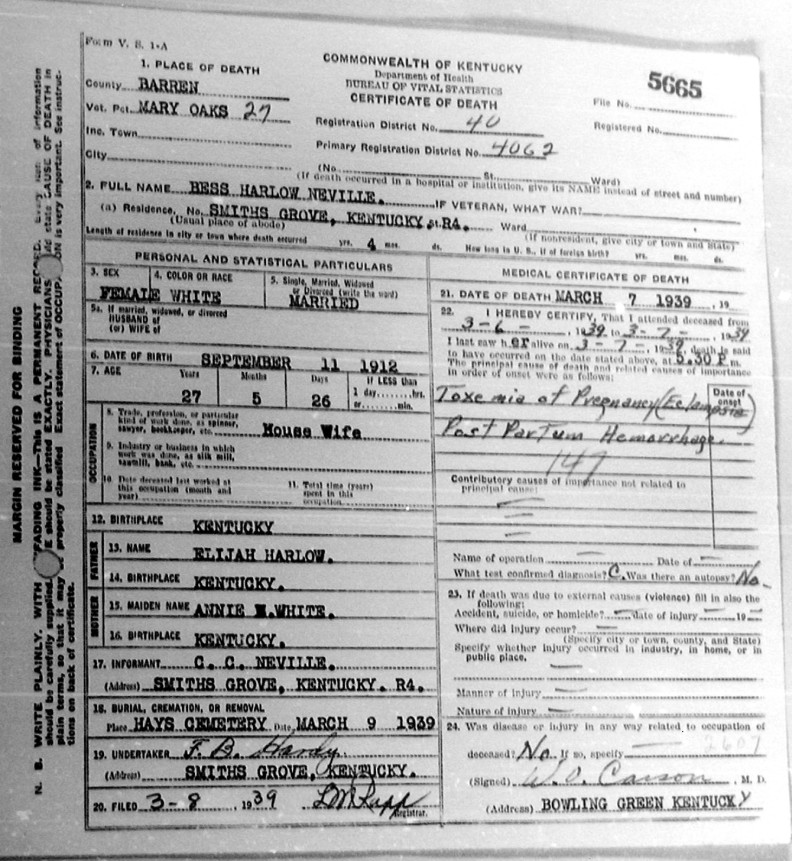 Form V. S. 1-A
COMMONWEALTH OF KENTUCKY
Department of Health
BUREAU OF VITAL STATISTICS
CERTIFICATE OF DEATH
5665
File No.
Registered No.
1. PLACE OF DEATH
County BARREN
Vot. Pct. MARY OAKS 27
Inc. Town
City
Registration District No. 40
Primary Registration District No. 4062
(No. St. Ward)
(If death occurred in a hospital or institution, give its NAME instead of street and number)
2. FULL NAME BESS HARLOW NEVILLE. IF VETERAN, WHAT WAR?
(a) Residence, No. SMITHS GROVE, KENTUCKY. St. R4. Ward
(Usual place of abode) (If nonresident, give city or town and State)
Length of residence in city or town where death occurred yrs. 4 mos. ds. How long in U. S., if of foreign birth? yrs. mos. ds.
PERSONAL AND STATISTICAL PARTICULARS
3. SEX FEMALE
4. COLOR OR RACE WHITE
5. Single, Married, Widowed
or Divorced (write the word)
MARRIED
5a. If married, widowed, or divorced
HUSBAND of
(or) WIFE of
6. DATE OF BIRTH SEPTEMBER 11 1912
7. AGE Years Months Days If LESS than
27 5 26 1 day hrs.
or min.
OCCUPATION
8. Trade, profession, or particular
kind of work done, as spinner,
sawyer, bookkeeper, etc. House Wife
9. Industry or business in which
work was done, as silk mill,
sawmill, bank, etc.
10. Date deceased last worked at
this occupation (month and
year)
11. Total time (years)
spent in this
occupation
12. BIRTHPLACE KENTUCKY
FATHER
13. NAME ELIJAH HARLOW.
14. BIRTHPLACE KENTUCKY.
MOTHER
15. MAIDEN NAME ANNIE M.WHITE.
16. BIRTHPLACE KENTUCKY.
17. INFORMANT C. C. NEVILLE.
(Address) SMITHS GROVE, KENTUCKY. R4.
18. BURIAL, CREMATION, OR REMOVAL
Place HAYS CEMETERY Date MARCH 9 1939
19. UNDERTAKER F. B. Hardy
(Address) SMITHS GROVE, KENTUCKY.
20. FILED 3-8, 1939
Registrar.
MEDICAL CERTIFICATE OF DEATH
21. DATE OF DEATH MARCH 7 1939 , 19
22. I HEREBY CERTIFY, That I attended deceased from
3-6-, 1939 to 3-7-, 1939
I last saw her alive on 3-7-, 1939, death is said
to have occurred on the date stated above, at 5.30 P.m.
The principal cause of death and related causes of importance
in order of onset were as follows:
Date of
onset
Toxemia of Pregnancy (Eclampsia)
Post Partum Hemorrhage.
147
Contributory causes of importance not related to
principal cause:
Name of operation — Date of —
What test confirmed diagnosis? C. Was there an autopsy? No-
23. If death was due to external causes (violence) fill in also the
following:
Accident, suicide, or homicide? — date of injury — 19 —
Where did injury occur? —
(Specify city or town, county, and State)
Specify whether injury occurred in industry, in home, or in
public place.
Manner of injury —
Nature of injury —
24. Was disease or injury in any way related to occupation of
deceased? No. If so, specify —
(Signed) W. O. Carson, M. D.
(Address) BOWLING GREEN KENTUCKY
MARGIN RESERVED FOR BINDING